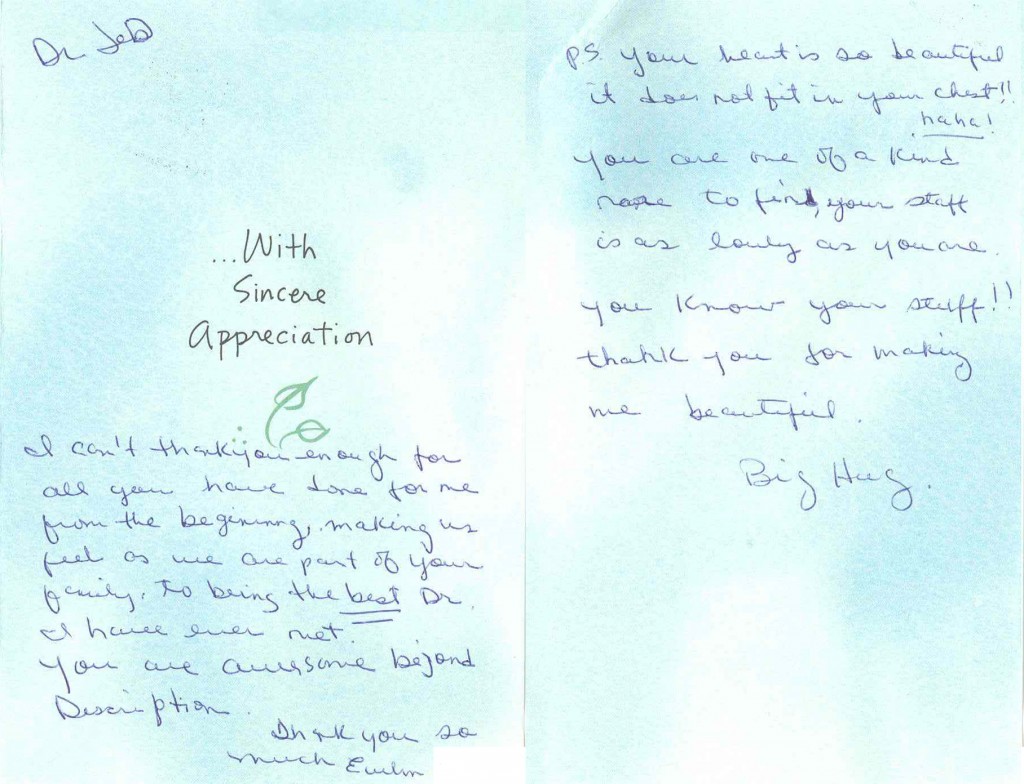 Dr. Jeb
...With
Sincere
Appreciation
I can't thank you enough for
all you have done for me
from the beginning, making us
feel as we are part of your
family. to being the best Dr.
I have ever met.
You are awesome beyond
Description.
Thank you so
much
P.S. your heart is so beautiful
it does not fit in your chest!!
haha!
you are one of a kind
rare to find, your staff
is as lovely as you are.
you know your stuff!!
thank you for making
me beautiful.
Big Hug.